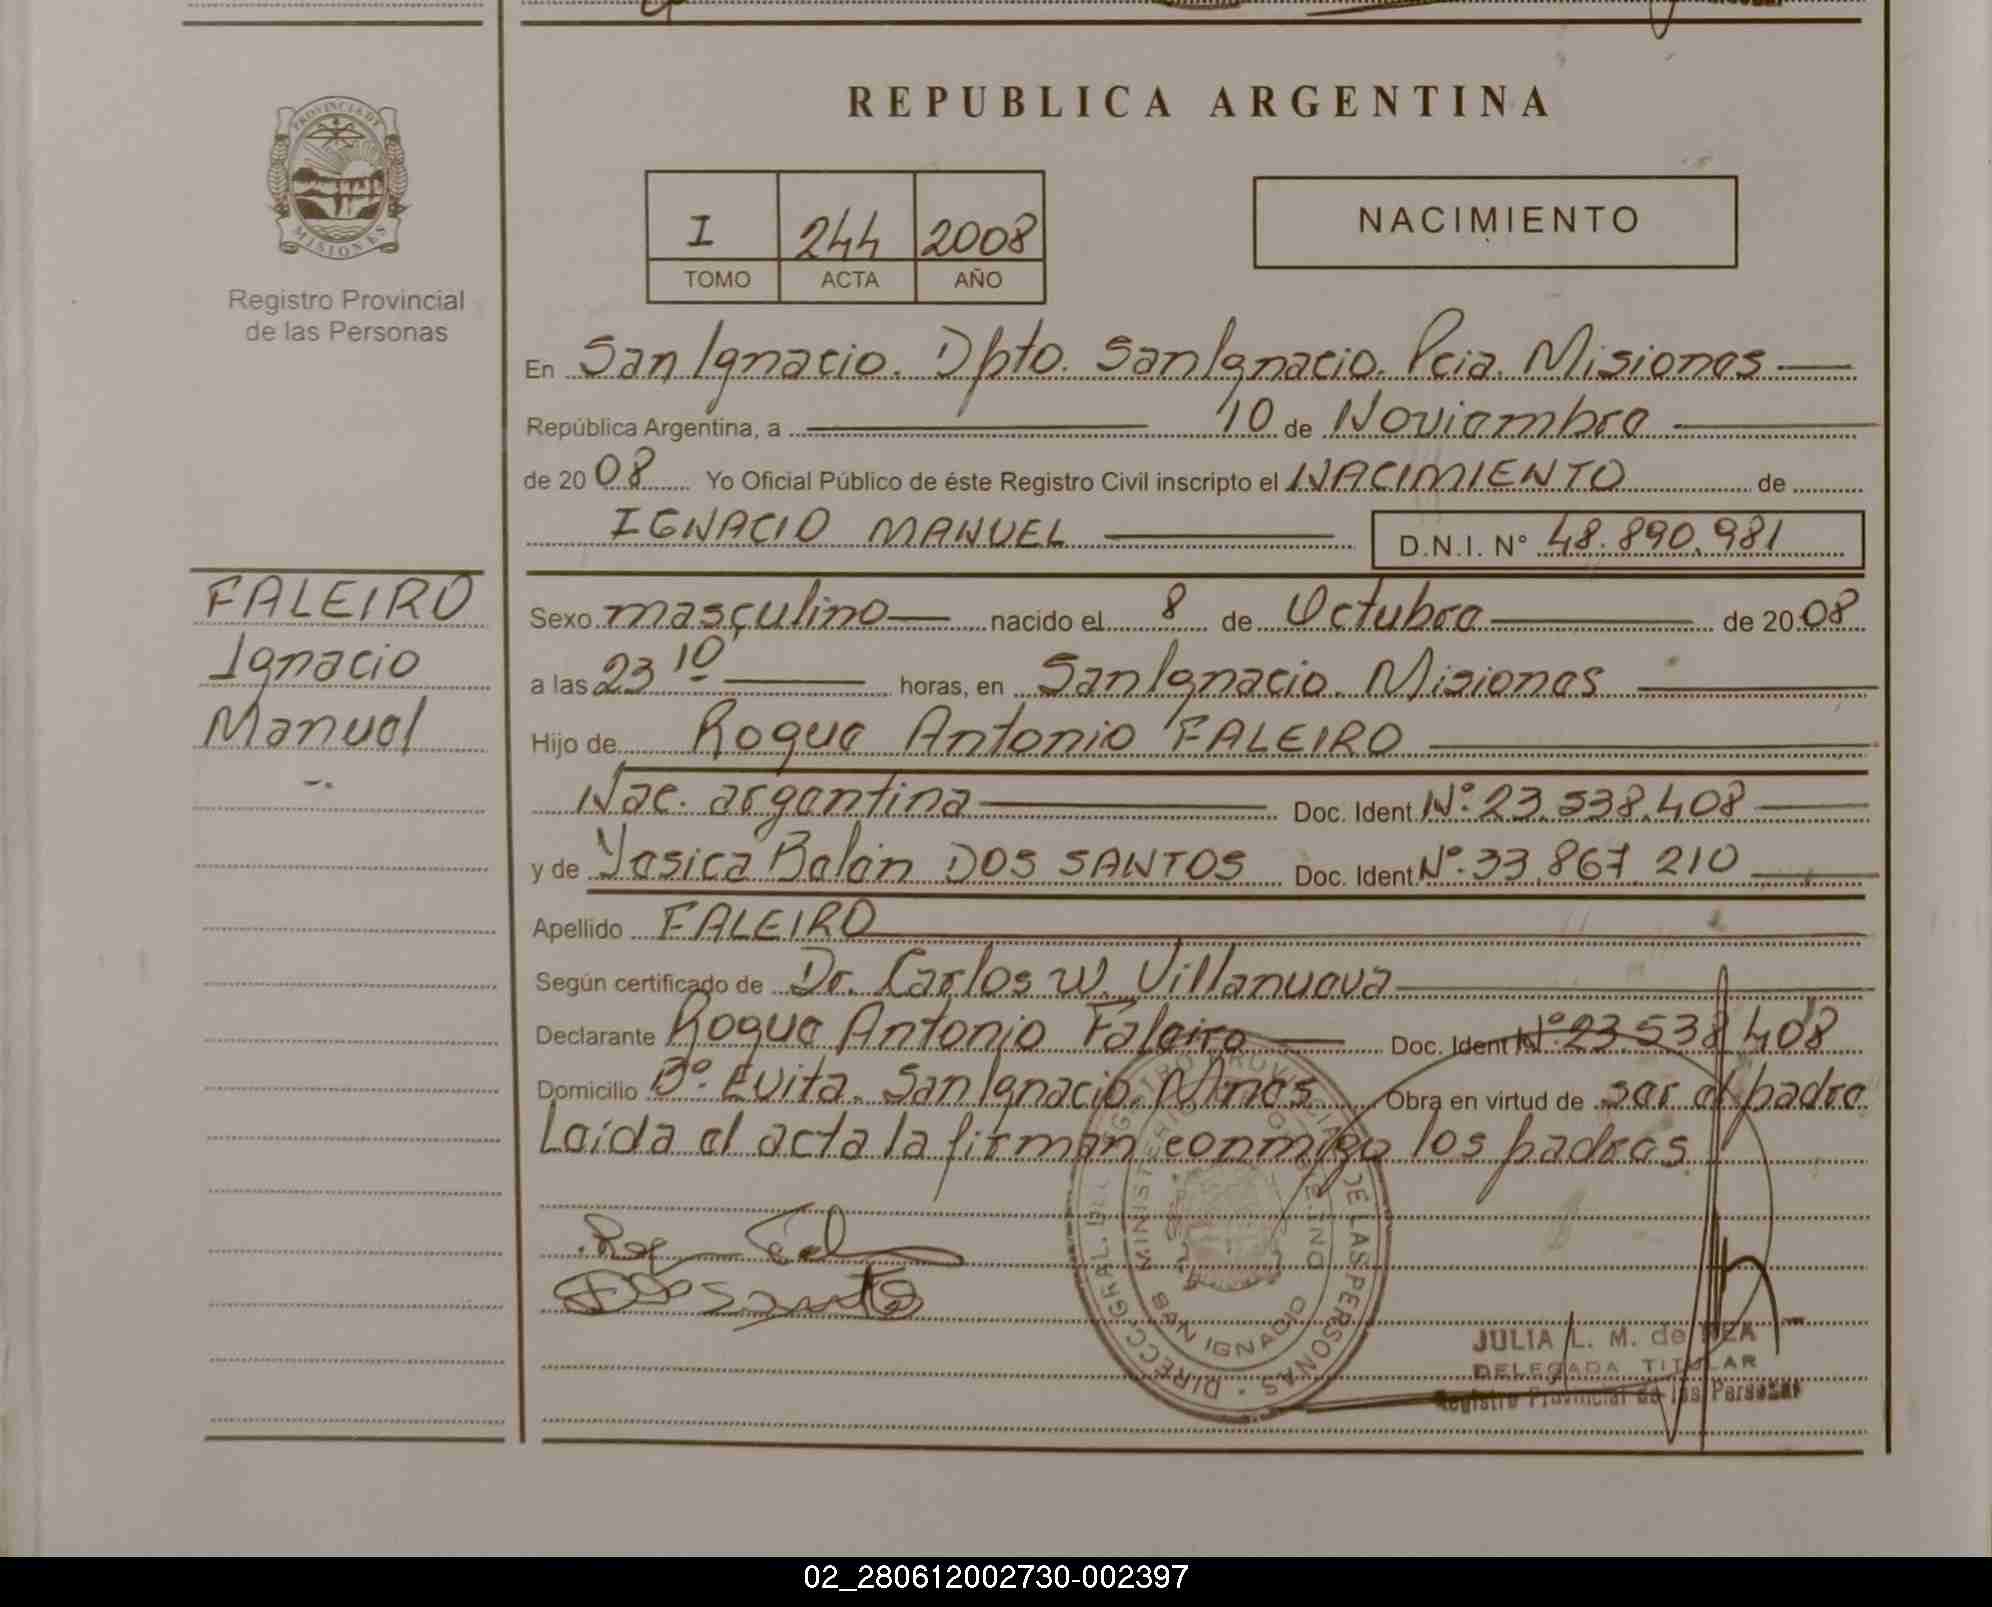 REPUBLICA ARGENTINA
PROVINCIA DE
MISIONES
Registro Provincial
de las Personas
I 244 2008
TOMO ACTA AÑO
NACIMIENTO
En San Ignacio. Dpto. San Ignacio. Pcia. Misiones
República Argentina, a 10 de Noviembre
de 2008 Yo Oficial Público de éste Registro Civil inscripto el NACIMIENTO de
IGNACIO MANUEL D.N.I. N° 48.890.981
FALEIRO
Ignacio
Manuel
Sexo masculino nacido el 8 de Octubre de 2008
a las 23 10 horas, en San Ignacio. Misiones
Hijo de Roque Antonio FALEIRO
Nac. argentina Doc. Ident. N°. 23.538.408
y de Yesica Belén DOS SANTOS Doc. Ident. N°. 33.867.210
Apellido FALEIRO
Según certificado de Dr. Carlos W. Villanueva
Declarante Roque Antonio Faleiro Doc. Ident N°. 23.538.408
Domicilio B°. Evita. San Ignacio. Mnes Obra en virtud de ser el padre
Leída el acta la firman conmigo los padres
DIRECC. GRAL. DEL REGISTRO PROVINCIAL DE LAS PERSONAS
SAN IGNACIO
JULIA L. M. de
DELEGADA TITULAR
Registro Provincial de las Personas
02_280612002730-002397